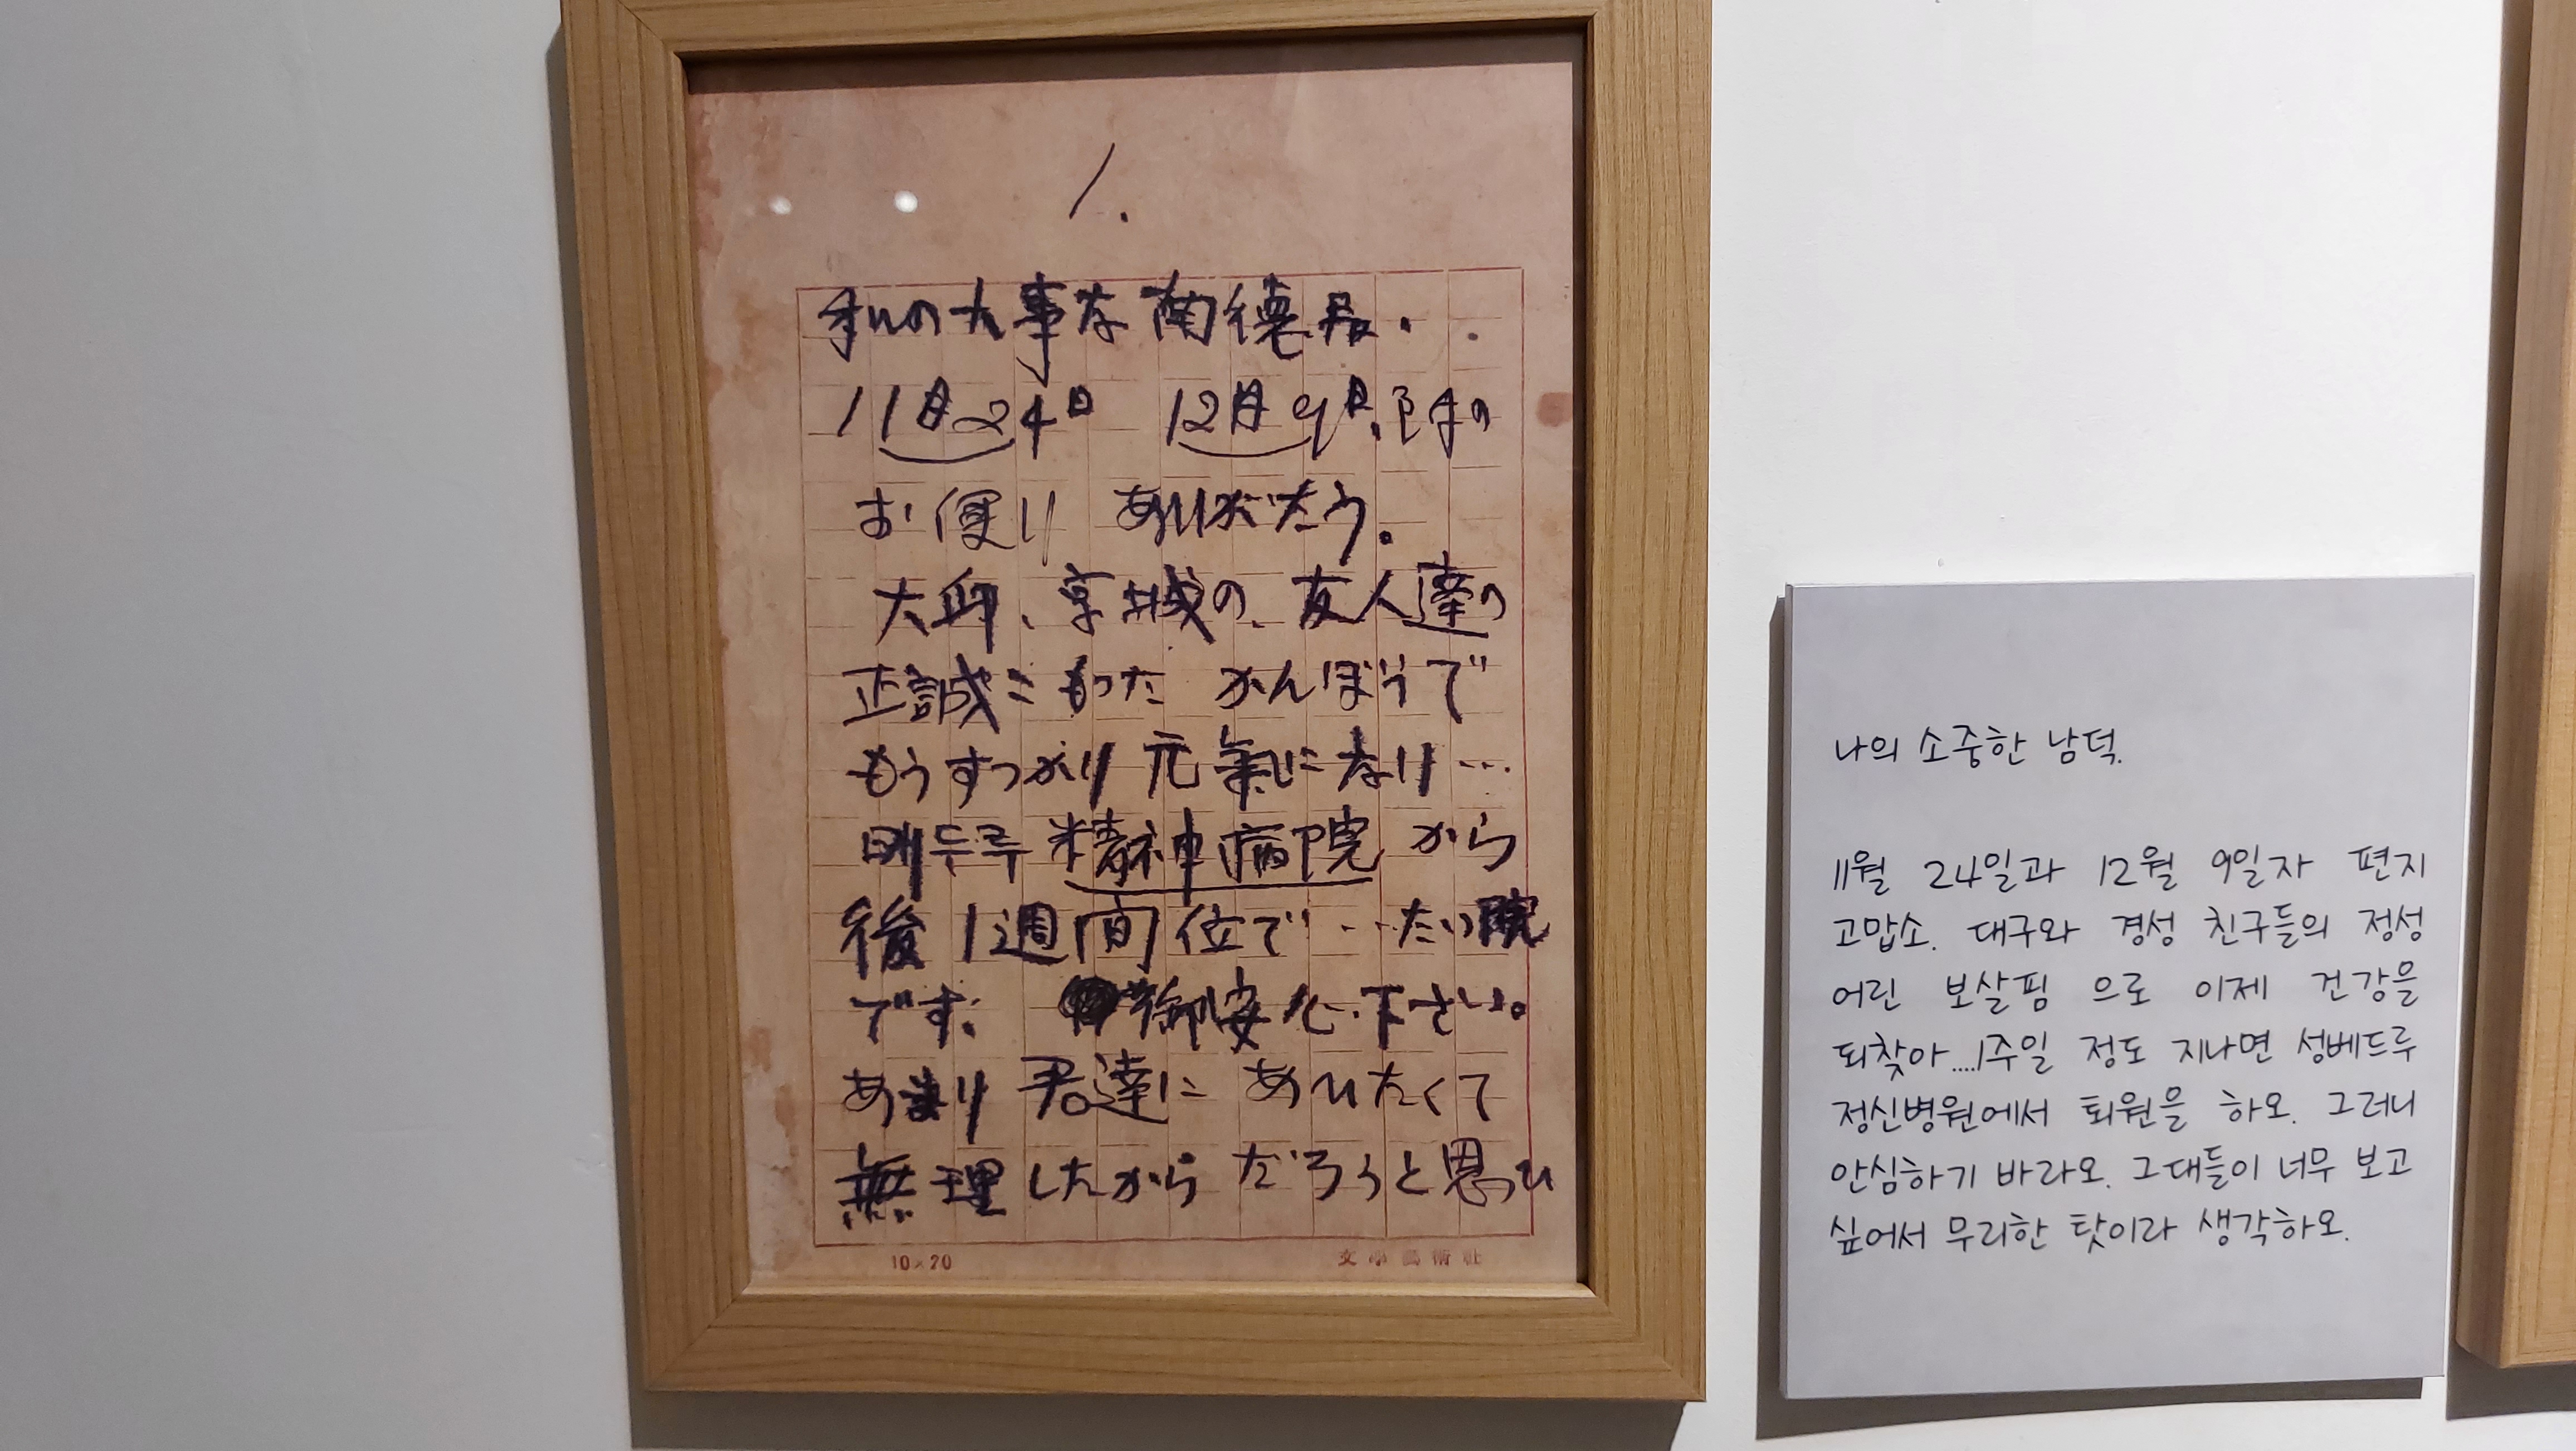 1.
私の大事な南徳君.
11月24日 12月9日、附の
お便り ありがたう。
大邱、京城の、友人達の
正誠こもった かんぼうで
もうすっかり 元氣になり…
베두루 精神病院 から
後1週間位で‥‥たい院
です. 御安心下さい。
あまり君達に あひたくて
無理したからだろうと思ひ
10×20
文學藝術社
나의 소중한 남덕.
11월 24일과 12월 9일자 편지
고맙소. 대구와 경성 친구들의 정성
어린 보살핌 으로 이제 건강을
되찾아....1주일 정도 지나면 성베드루
정신병원에서 퇴원을 하오. 그러니
안심하기 바라오. 그대들이 너무 보고
싶어서 무리한 탓이라 생각하오.